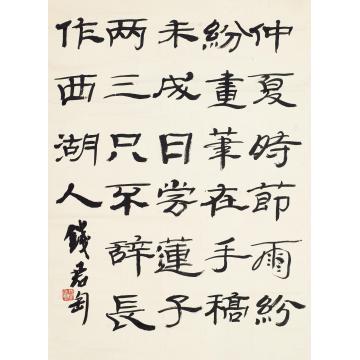 仲夏時節雨紛
紛畫筆在手稿
未成日嘗蓮子
两三只不辭長
作西湖人錢君匋